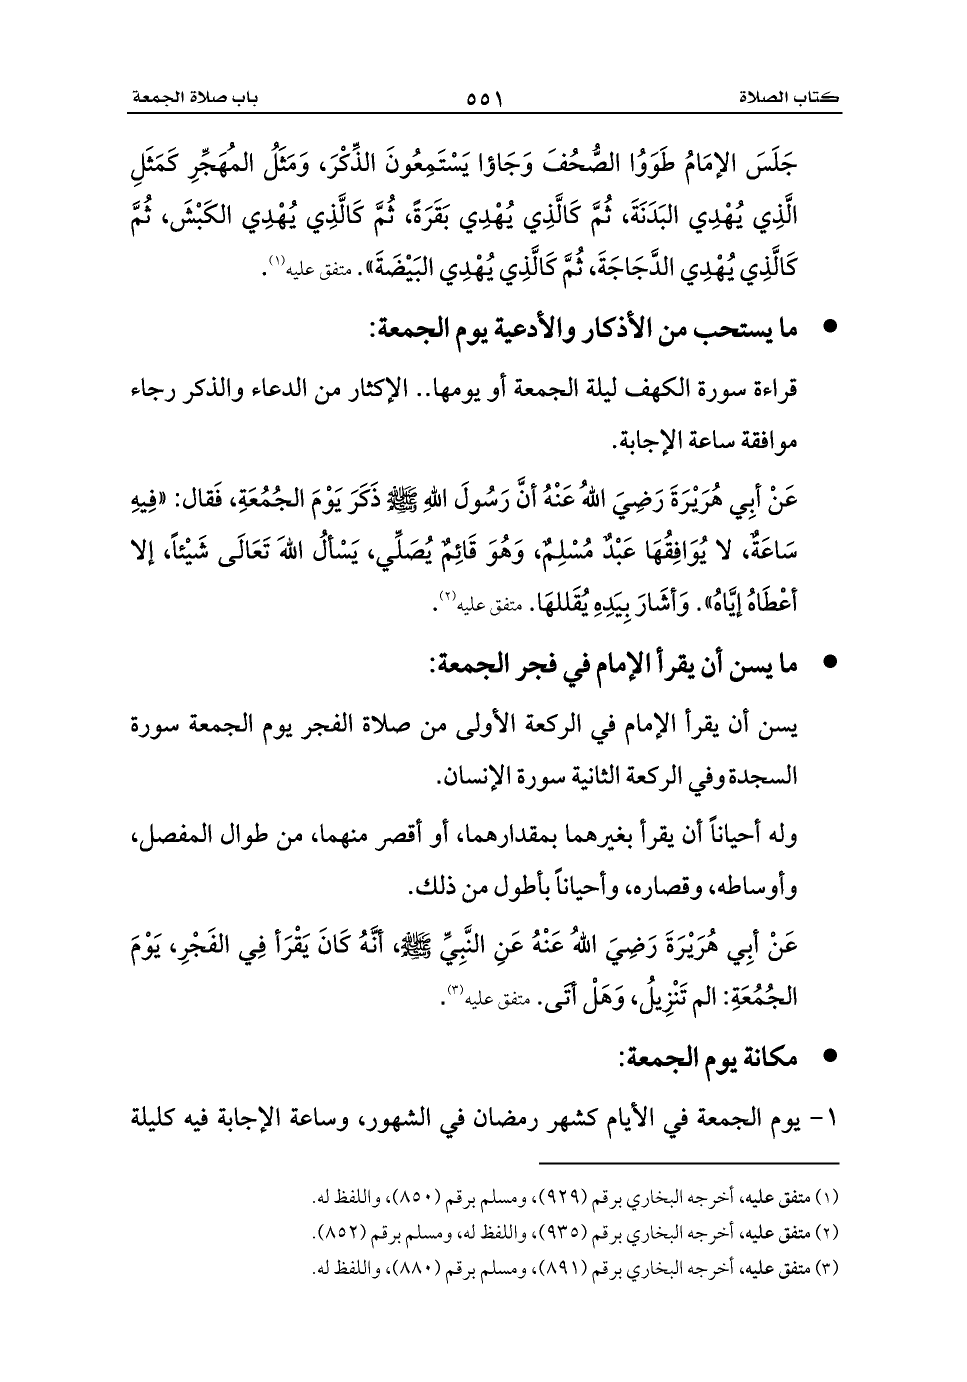 كتاب الصلاة ٥٥١ باب صلاة الجمعة
جَلَسَ الإمَامُ طَوَوُا الصُّحُفَ وَجَاؤا يَسْتَمِعُونَ الذِّكْرَ، وَمَثَلُ المُهَجِّرِ كَمَثَلِ
الَّذِي يُهْدِي البَدَنَةَ، ثُمَّ كَالَّذِي يُهْدِي بَقَرَةً، ثُمَّ كَالَّذِي يُهْدِي الكَبْشَ، ثُمَّ
كَالَّذِي يُهْدِي الدَّجَاجَةَ، ثُمَّ كَالَّذِي يُهْدِي البَيْضَةَ». متفق عليه(١).
• ما يستحب من الأذكار والأدعية يوم الجمعة:
قراءة سورة الكهف ليلة الجمعة أو يومها.. الإكثار من الدعاء والذكر رجاء
موافقة ساعة الإجابة.
عَنْ أبِي هُرَيْرَةَ رَضِيَ اللهُ عَنْهُ أنَّ رَسُولَ اللهِ ﷺ ذَكَرَ يَوْمَ الجُمُعَةِ، فَقال: «فِيهِ
سَاعَةٌ، لا يُوَافِقُهَا عَبْدٌ مُسْلِمٌ، وَهُوَ قَائِمٌ يُصَلِّي، يَسْألُ اللهَ تَعَالَى شَيْئاً، إلا
أعْطَاهُ إيَّاهُ». وَأشَارَ بِيَدِهِ يُقَللهَا. متفق عليه(٢).
• ما يسن أن يقرأ الإمام في فجر الجمعة:
يسن أن يقرأ الإمام في الركعة الأولى من صلاة الفجر يوم الجمعة سورة
السجدة وفي الركعة الثانية سورة الإنسان.
وله أحياناً أن يقرأ بغيرهما بمقدارهما، أو أقصر منهما، من طوال المفصل،
وأوساطه، وقصاره، وأحياناً بأطول من ذلك.
عَنْ أبِي هُرَيْرَةَ رَضِيَ اللهُ عَنْهُ عَنِ النَّبِيِّ ﷺ، أنَّهُ كَانَ يَقْرَأ فِي الفَجْرِ، يَوْمَ
الجُمُعَةِ: الم تَنْزِيلُ، وَهَلْ أتَى. متفق عليه(٣).
• مكانة يوم الجمعة:
١- يوم الجمعة في الأيام كشهر رمضان في الشهور، وساعة الإجابة فيه كليلة
(١) متفق عليه، أخرجه البخاري برقم (٩٢٩)، ومسلم برقم (٨٥٠)، واللفظ له.
(٢) متفق عليه، أخرجه البخاري برقم (٩٣٥)، واللفظ له، ومسلم برقم (٨٥٢).
(٣) متفق عليه، أخرجه البخاري برقم (٨٩١)، ومسلم برقم (٨٨٠)، واللفظ له.